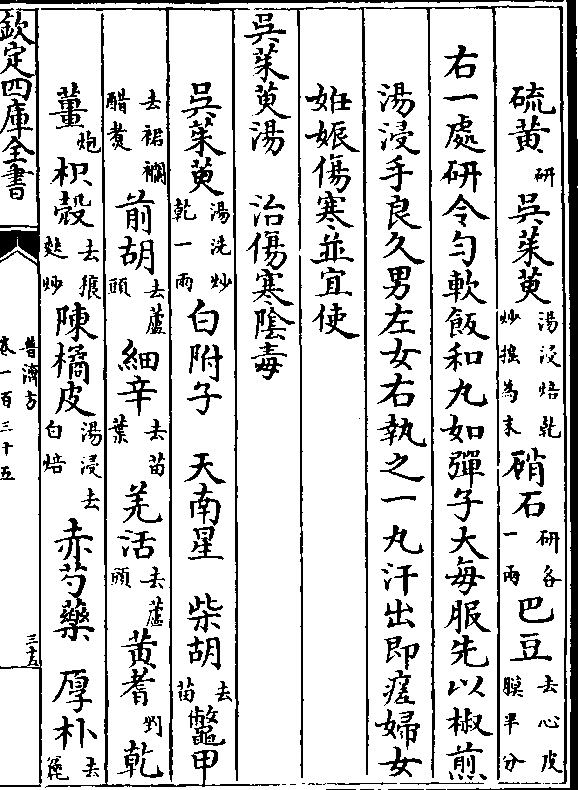 硫黄研吳茱萸湯浸焙乾炒搗為末硝石研各一兩巴豆去心皮膜半分
右一處研令勻軟飯和丸如彈子大每服先以椒煎
湯浸手良久男左女右執之一丸汗出即瘥婦女
妊娠傷寒並宜使
吳茱萸湯 治傷寒陰毒
吳茱萸湯洗炒乾一兩白附子 天南星 柴胡去苗鼈甲
去裙襴醋炙前胡去蘆頭細辛去苗葉羌活去蘆頭黄耆剉乾
薑炮枳殻去穰麩炒陳橘皮湯浸去白焙赤芍藥 厚朴去麄
欽定四庫全書
普濟方
卷一百三十五
三十五